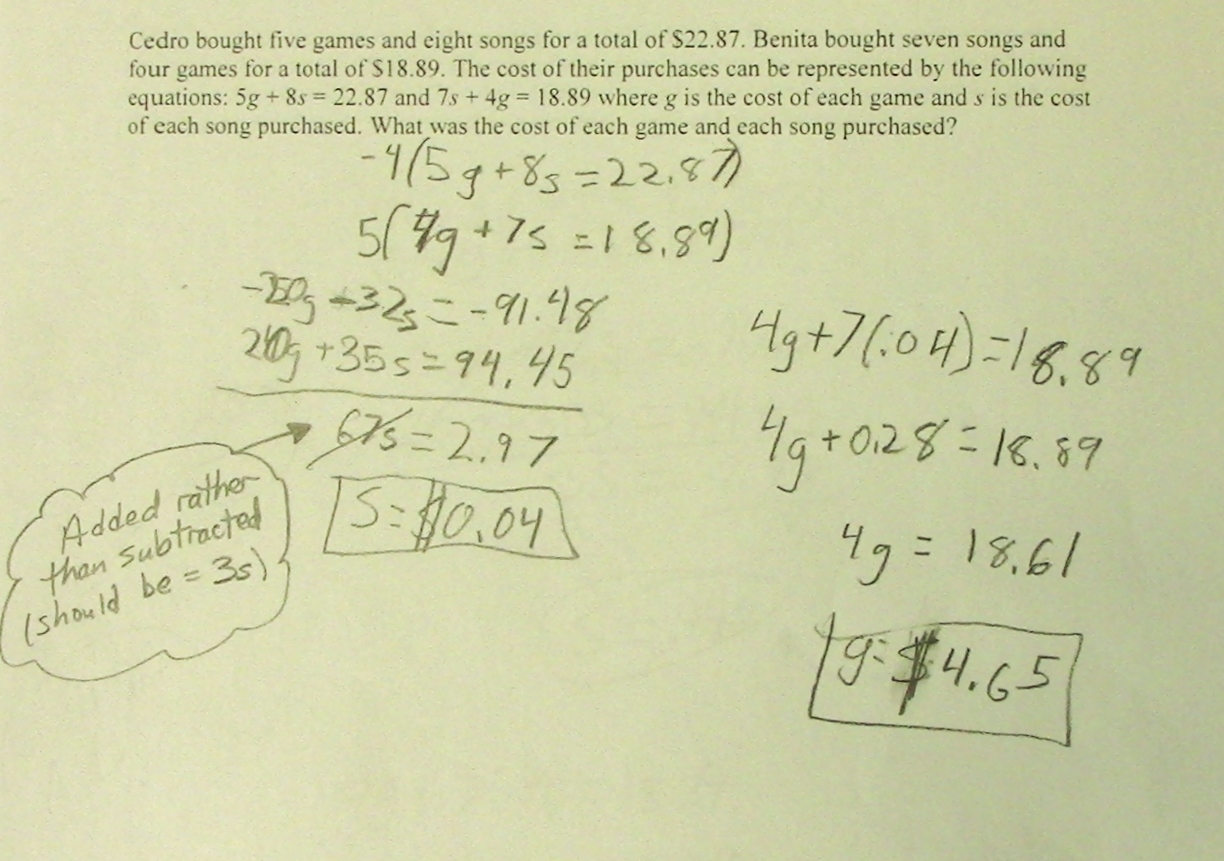 Cedro bought five games and eight songs for a total of $22.87. Benita bought seven songs and
four games for a total of $18.89. The cost of their purchases can be represented by the following
equations: 5g + 8s = 22.87 and 7s + 4g = 18.89 where g is the cost of each game and s is the cost
of each song purchased. What was the cost of each game and each song purchased?
-4(5g+8s=22.87)
5(4g+7s=18.89)
-20g-32s=-91.48
20g+35s=94.45
67s=2.97
S=$0.04
Added rather
than subtracted
(should be = 3s)
4g+7(.04)=18.89
4g+0.28=18.89
4g = 18.61
g=$4.65